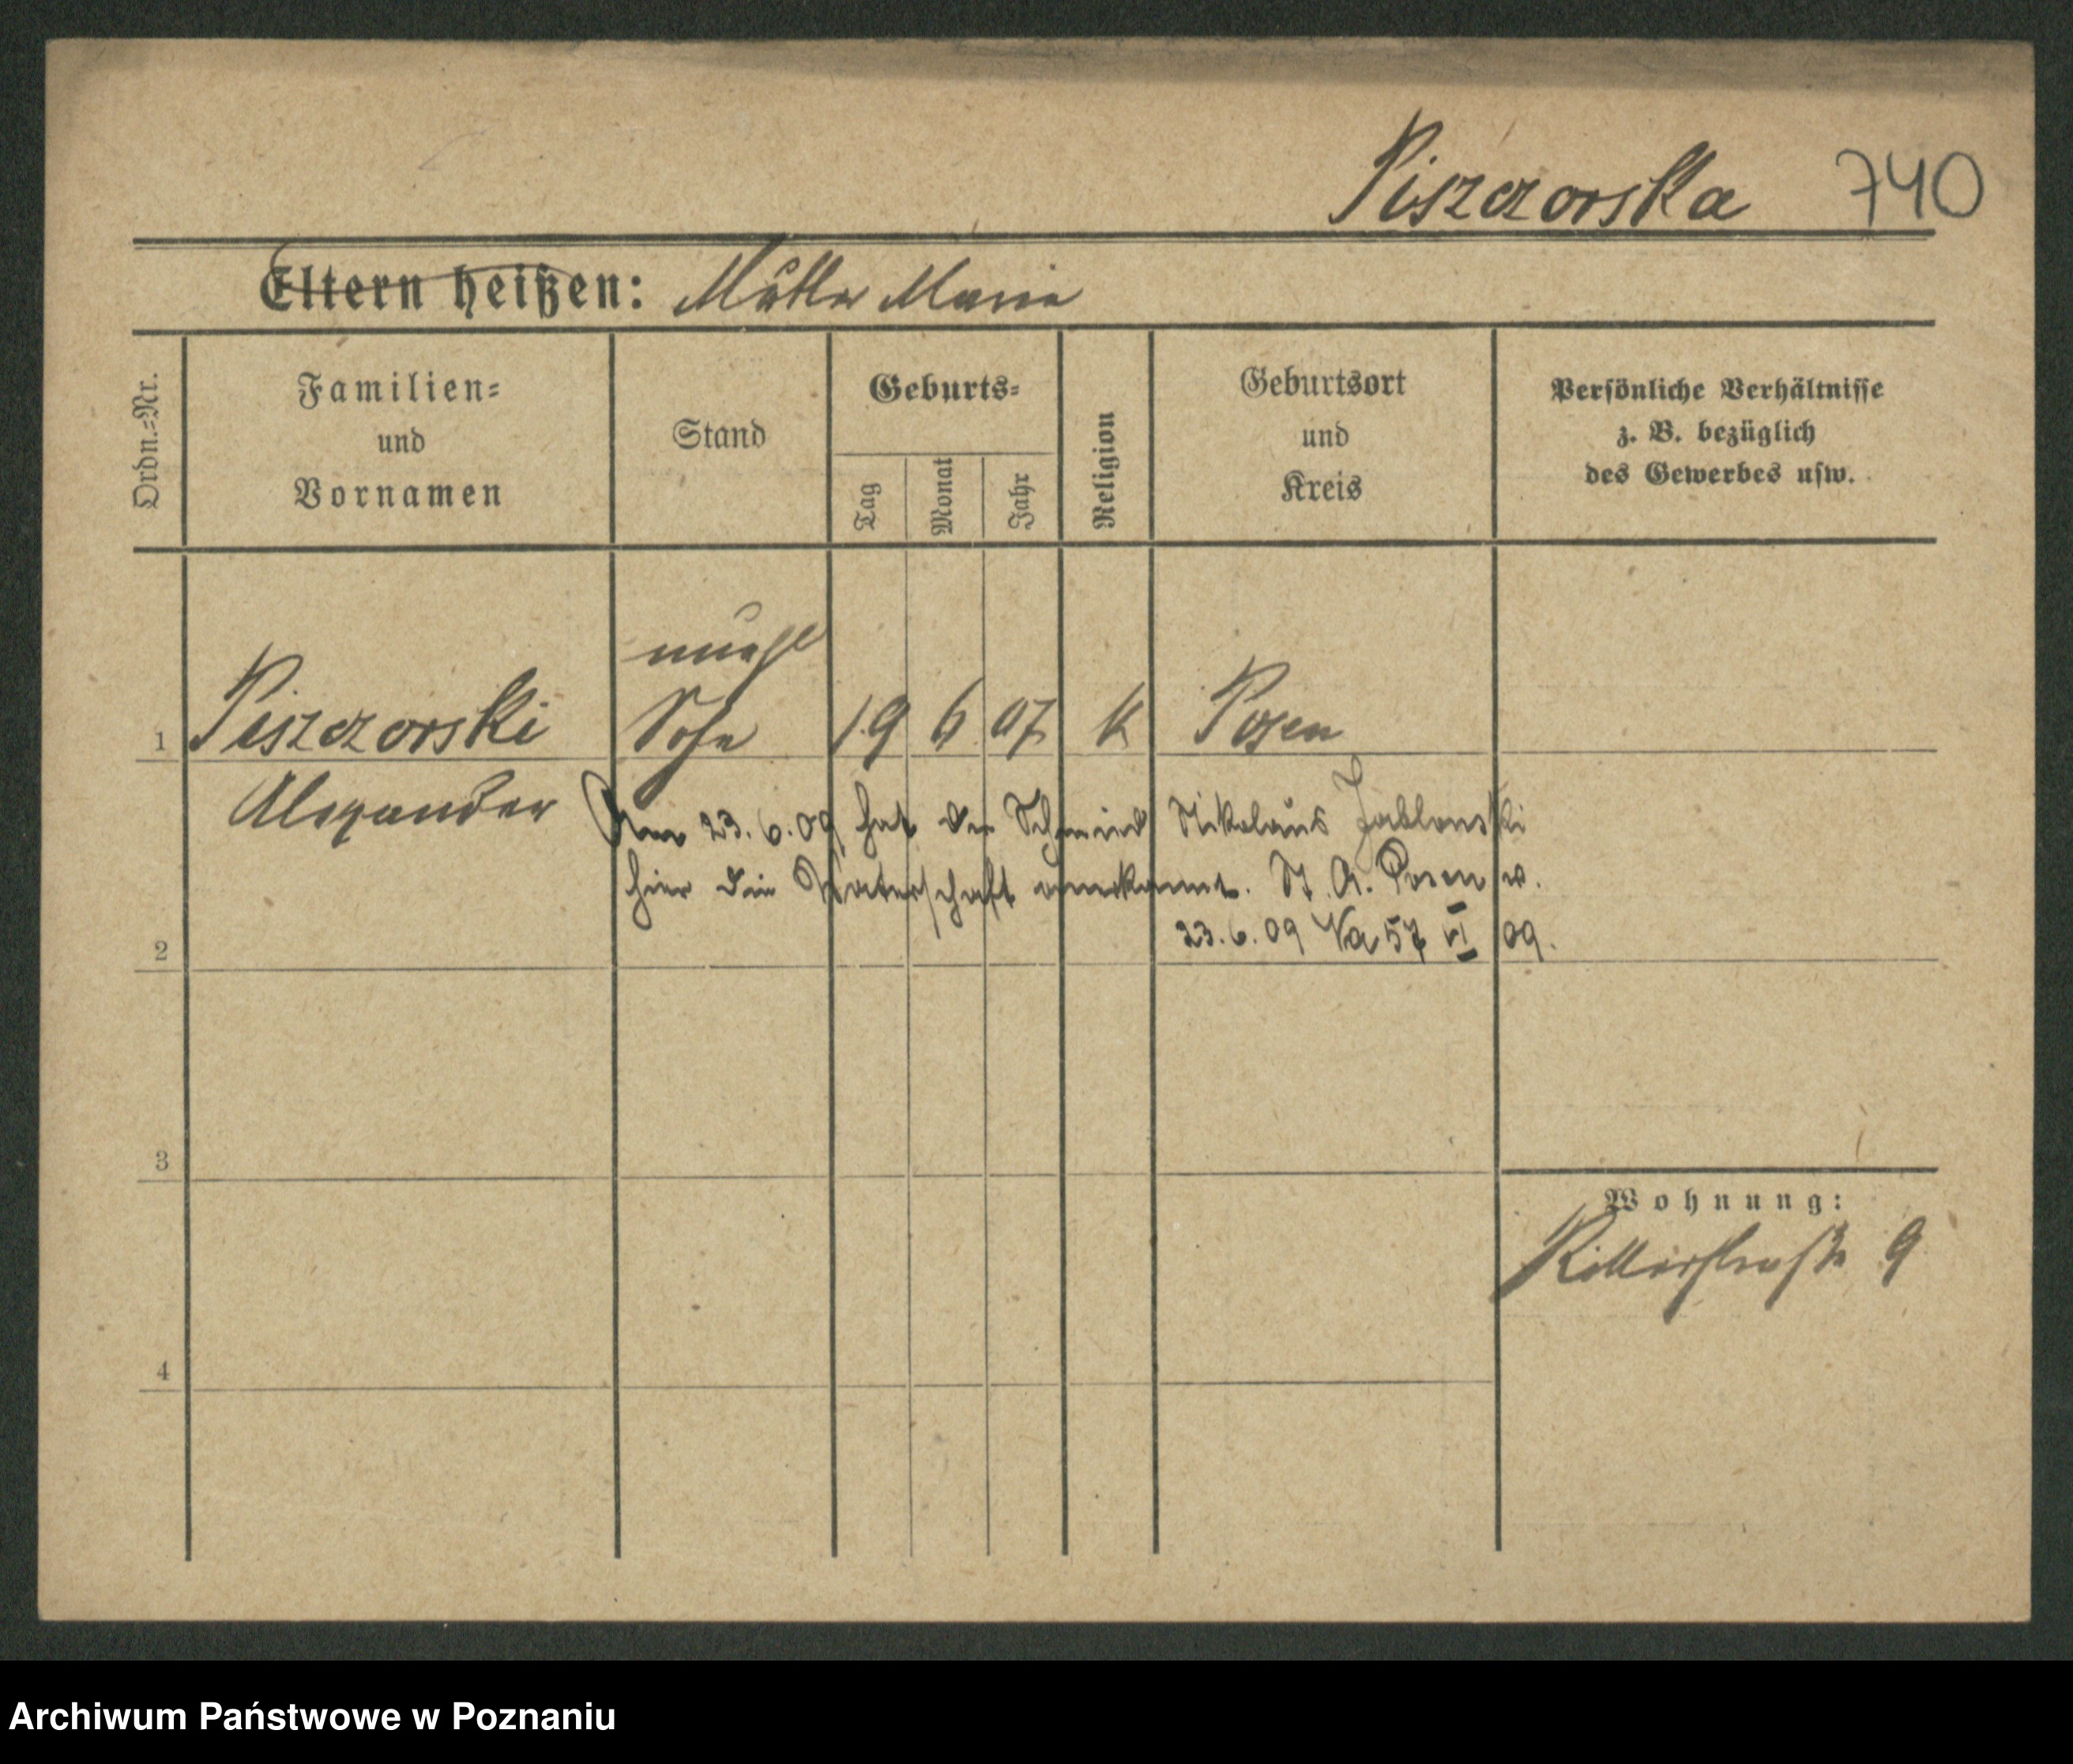 Piszczorska 740
Eltern heißen: Mutter Maria
Ordn.=Nr.
Familien=
und
Vornamen
Stand
Geburts=
Tag
Monat
Jahr
Religion
Geburtsort
und
Kreis
Persönliche Verhältnisse
z. B. bezüglich
des Gewerbes usw.
unehl
1 Piszczorski Sohn 19 6 07 K Posen
Alexander
Am 23.6.09 hat der Schmied Nikolaus Jablonski
hier die Vaterschaft anerkannt. St. A. Posen v.
2 23.6.09 Va 57 VI 09.
3
Wohnung:
Ritterstraße 9
4
Archiwum Państwowe w Poznaniu